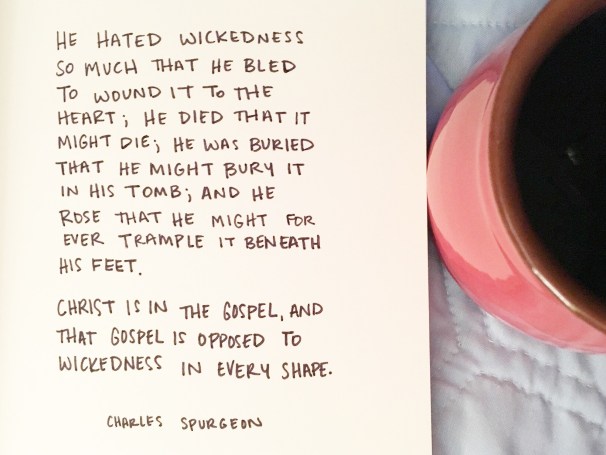 HE HATED WICKEDNESS
SO MUCH THAT HE BLED
TO WOUND IT TO THE
HEART; HE DIED THAT IT
MIGHT DIE; HE WAS BURIED
THAT HE MIGHT BURY IT
IN HIS TOMB; AND HE
ROSE THAT HE MIGHT FOR
EVER TRAMPLE IT BENEATH
HIS FEET.
CHRIST IS IN THE GOSPEL, AND
THAT GOSPEL IS OPPOSED TO
WICKEDNESS IN EVERY SHAPE.
CHARLES SPURGEON